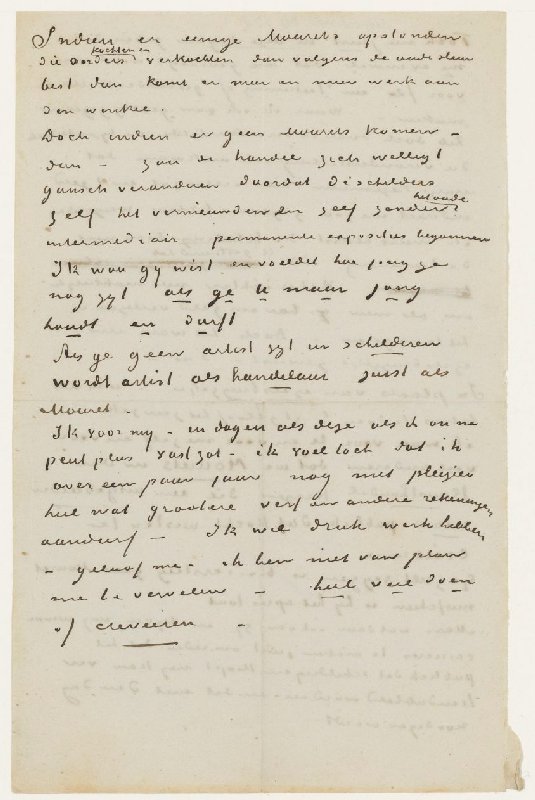 Indien er eenige Mourets opstonden
kochten en
die anders verkochten dan volgens de oude sleur
best dan komt er meer en meer werk aan
den winkel.
Doch indien er geen Mourets komen –
dan – zou de handel zich wellligt
gansch veranderen doordat de schilders
het oude
zelf het vernieuwden en zelf zonder
intermediair permanente exposities begonnen
Ik wou gy wist en voeldet hoe jong ge
nog zyt als ge U maar jong
houdt en durft
Als ge geen artist zyt in schilderen
wordt artist als handelaar juist als
Mouret.
Ik voor my – in dagen als deze als ik on ne
peut plus vast zat – ik voel toch dat ik
over een paar jaar nog met pleizier
heel wat grootere verf en andere rekeningen
aandurf – Ik wil druk werk hebben
– geloof me – ik ben niet van plan
me te vervelen – heel veel doen
of creveeren –